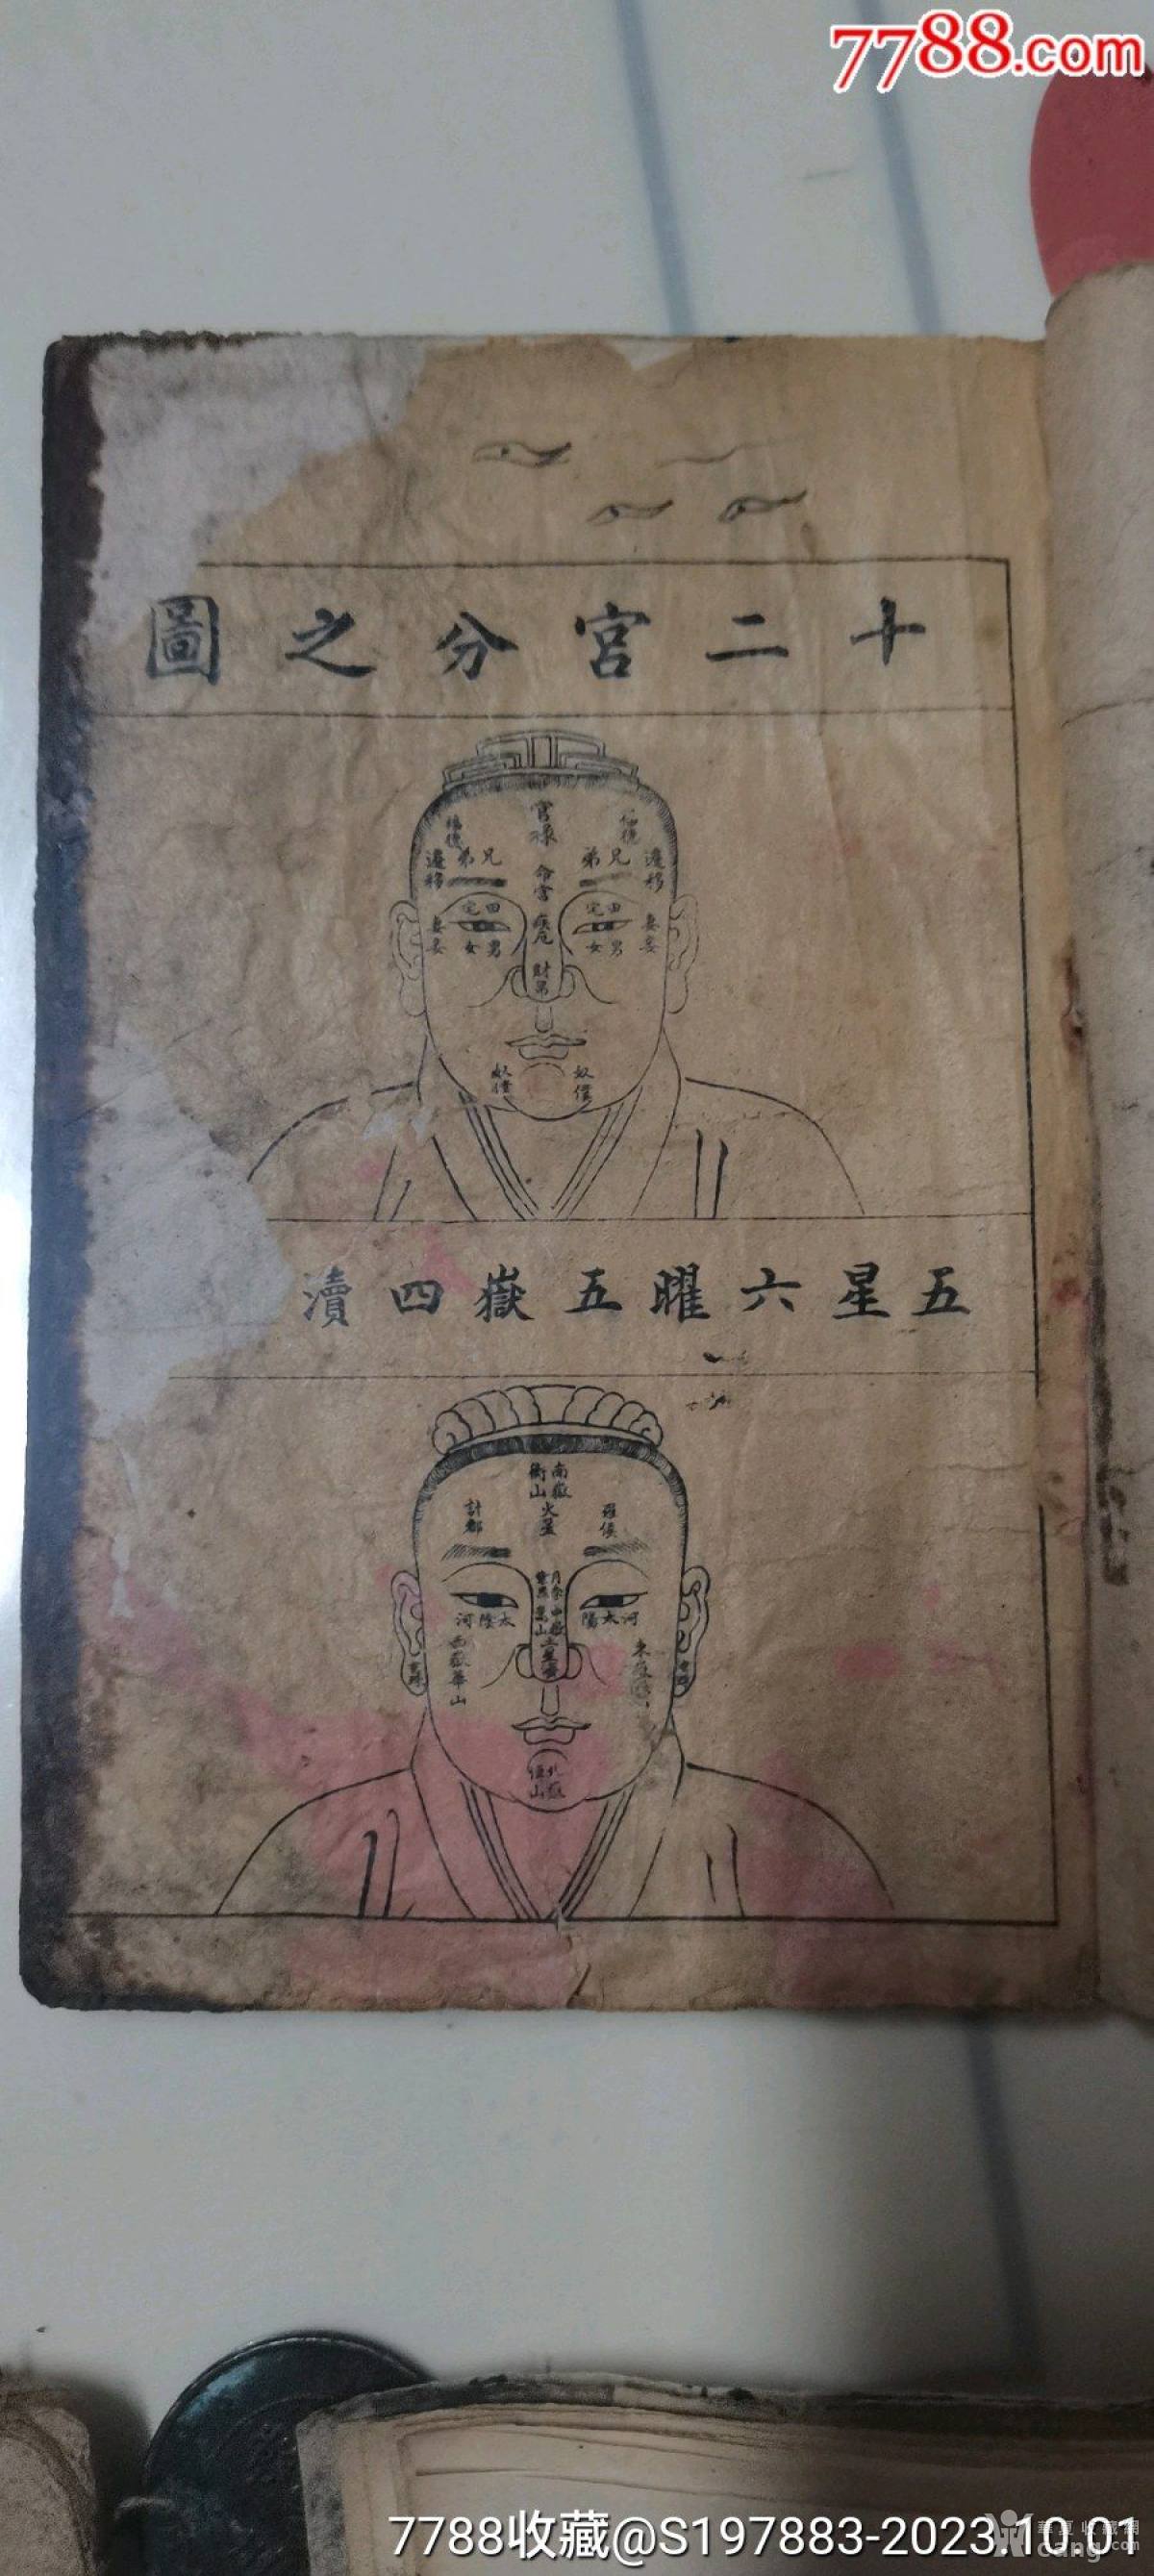 7788.com
十二宮分之圖
官祿
福德
福德
遷移
兄弟
兄弟
遷移
命宮
田宅
田宅
妻妾
疾厄
妻妾
男女
男女
財帛
奴僕
奴僕
五星六曜五嶽四瀆
南嶽
衡山
火星
羅睺
計都
月孛
紫氣
太陽
河
太陰
河
中嶽
嵩山
土星
西嶽華山
東嶽
北嶽
恒山
7788收藏@S197883-2023.10.01
華夏收藏網
cang.com